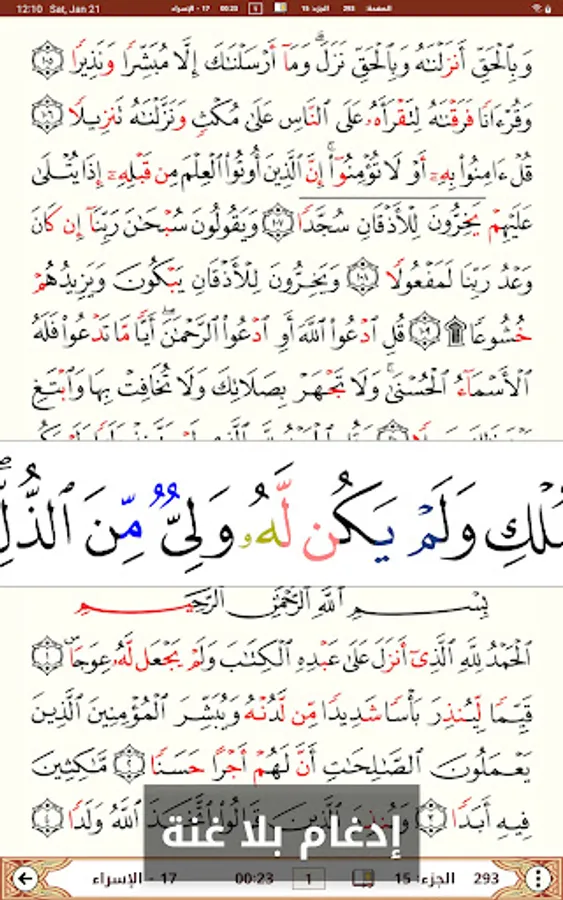 12:10 Sat, Jan 21
الصفحة: 293 الجزء: 15 1 00:23 17 - الإسراء
وَبِالْحَقِّ أَنزَلْنَاهُ وَبِالْحَقِّ نَزَلَ ۗ وَمَا أَرْسَلْنَاكَ إِلَّا مُبَشِّرًا وَنَذِيرًا ١٠٥
وَقُرْءَانًا فَرَقْنَاهُ لِتَقْرَأَهُ عَلَى النَّاسِ عَلَىٰ مُكْثٍ وَنَزَّلْنَاهُ تَنزِيلًا ١٠٦
قُلْ ءَامِنُوا بِهِ أَوْ لَا تُؤْمِنُوا ۚ إِنَّ الَّذِينَ أُوتُوا الْعِلْمَ مِن قَبْلِهِ إِذَا يُتْلَىٰ
عَلَيْهِمْ يَخِرُّونَ لِلْأَذْقَانِ سُجَّدًا ١٠٧ وَيَقُولُونَ سُبْحَانَ رَبِّنَا إِن كَانَ
وَعْدُ رَبِّنَا لَمَفْعُولًا ١٠٨ وَيَخِرُّونَ لِلْأَذْقَانِ يَبْكُونَ وَيَزِيدُهُمْ
خُشُوعًا ۩ ١٠٩ قُلِ ادْعُوا اللَّهَ أَوِ ادْعُوا الرَّحْمَٰنَ ۖ أَيًّا مَّا تَدْعُوا فَلَهُ
الْأَسْمَاءُ الْحُسْنَىٰ ۚ وَلَا تَجْهَرْ بِصَلَاتِكَ وَلَا تُخَافِتْ بِهَا وَابْتَغِ
ـمُلْكِ وَلَمْ يَكُن لَّهُۥ وَلِىٌّ مِّنَ الذُّلِّ ۖ
بِسْمِ اللَّهِ الرَّحْمَٰنِ الرَّحِيمِ
الْحَمْدُ لِلَّهِ الَّذِي أَنزَلَ عَلَىٰ عَبْدِهِ الْكِتَابَ وَلَمْ يَجْعَل لَّهُ عِوَجًا ۜ ١
قَيِّمًا لِّيُنذِرَ بَأْسًا شَدِيدًا مِّن لَّدُنْهُ وَيُبَشِّرَ الْمُؤْمِنِينَ الَّذِينَ
يَعْمَلُونَ الصَّالِحَاتِ أَنَّ لَهُمْ أَجْرًا حَسَنًا ٢ مَّاكِثِينَ
فِيهِ أَبَدًا ٣ وَيُنذِرَ الَّذِينَ قَالُوا اتَّخَذَ اللَّهُ وَلَدًا ٤
إدغام بلا غنة
293 الجزء: 15 1 00:23 17 - الإسراء